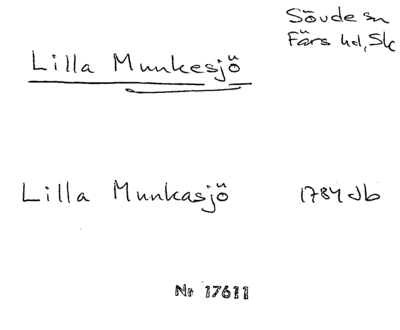 Sövde sn
Färs hd, Sk
Lilla Munkesjö
Lilla Munkasjö 1784 Jb
No 17611